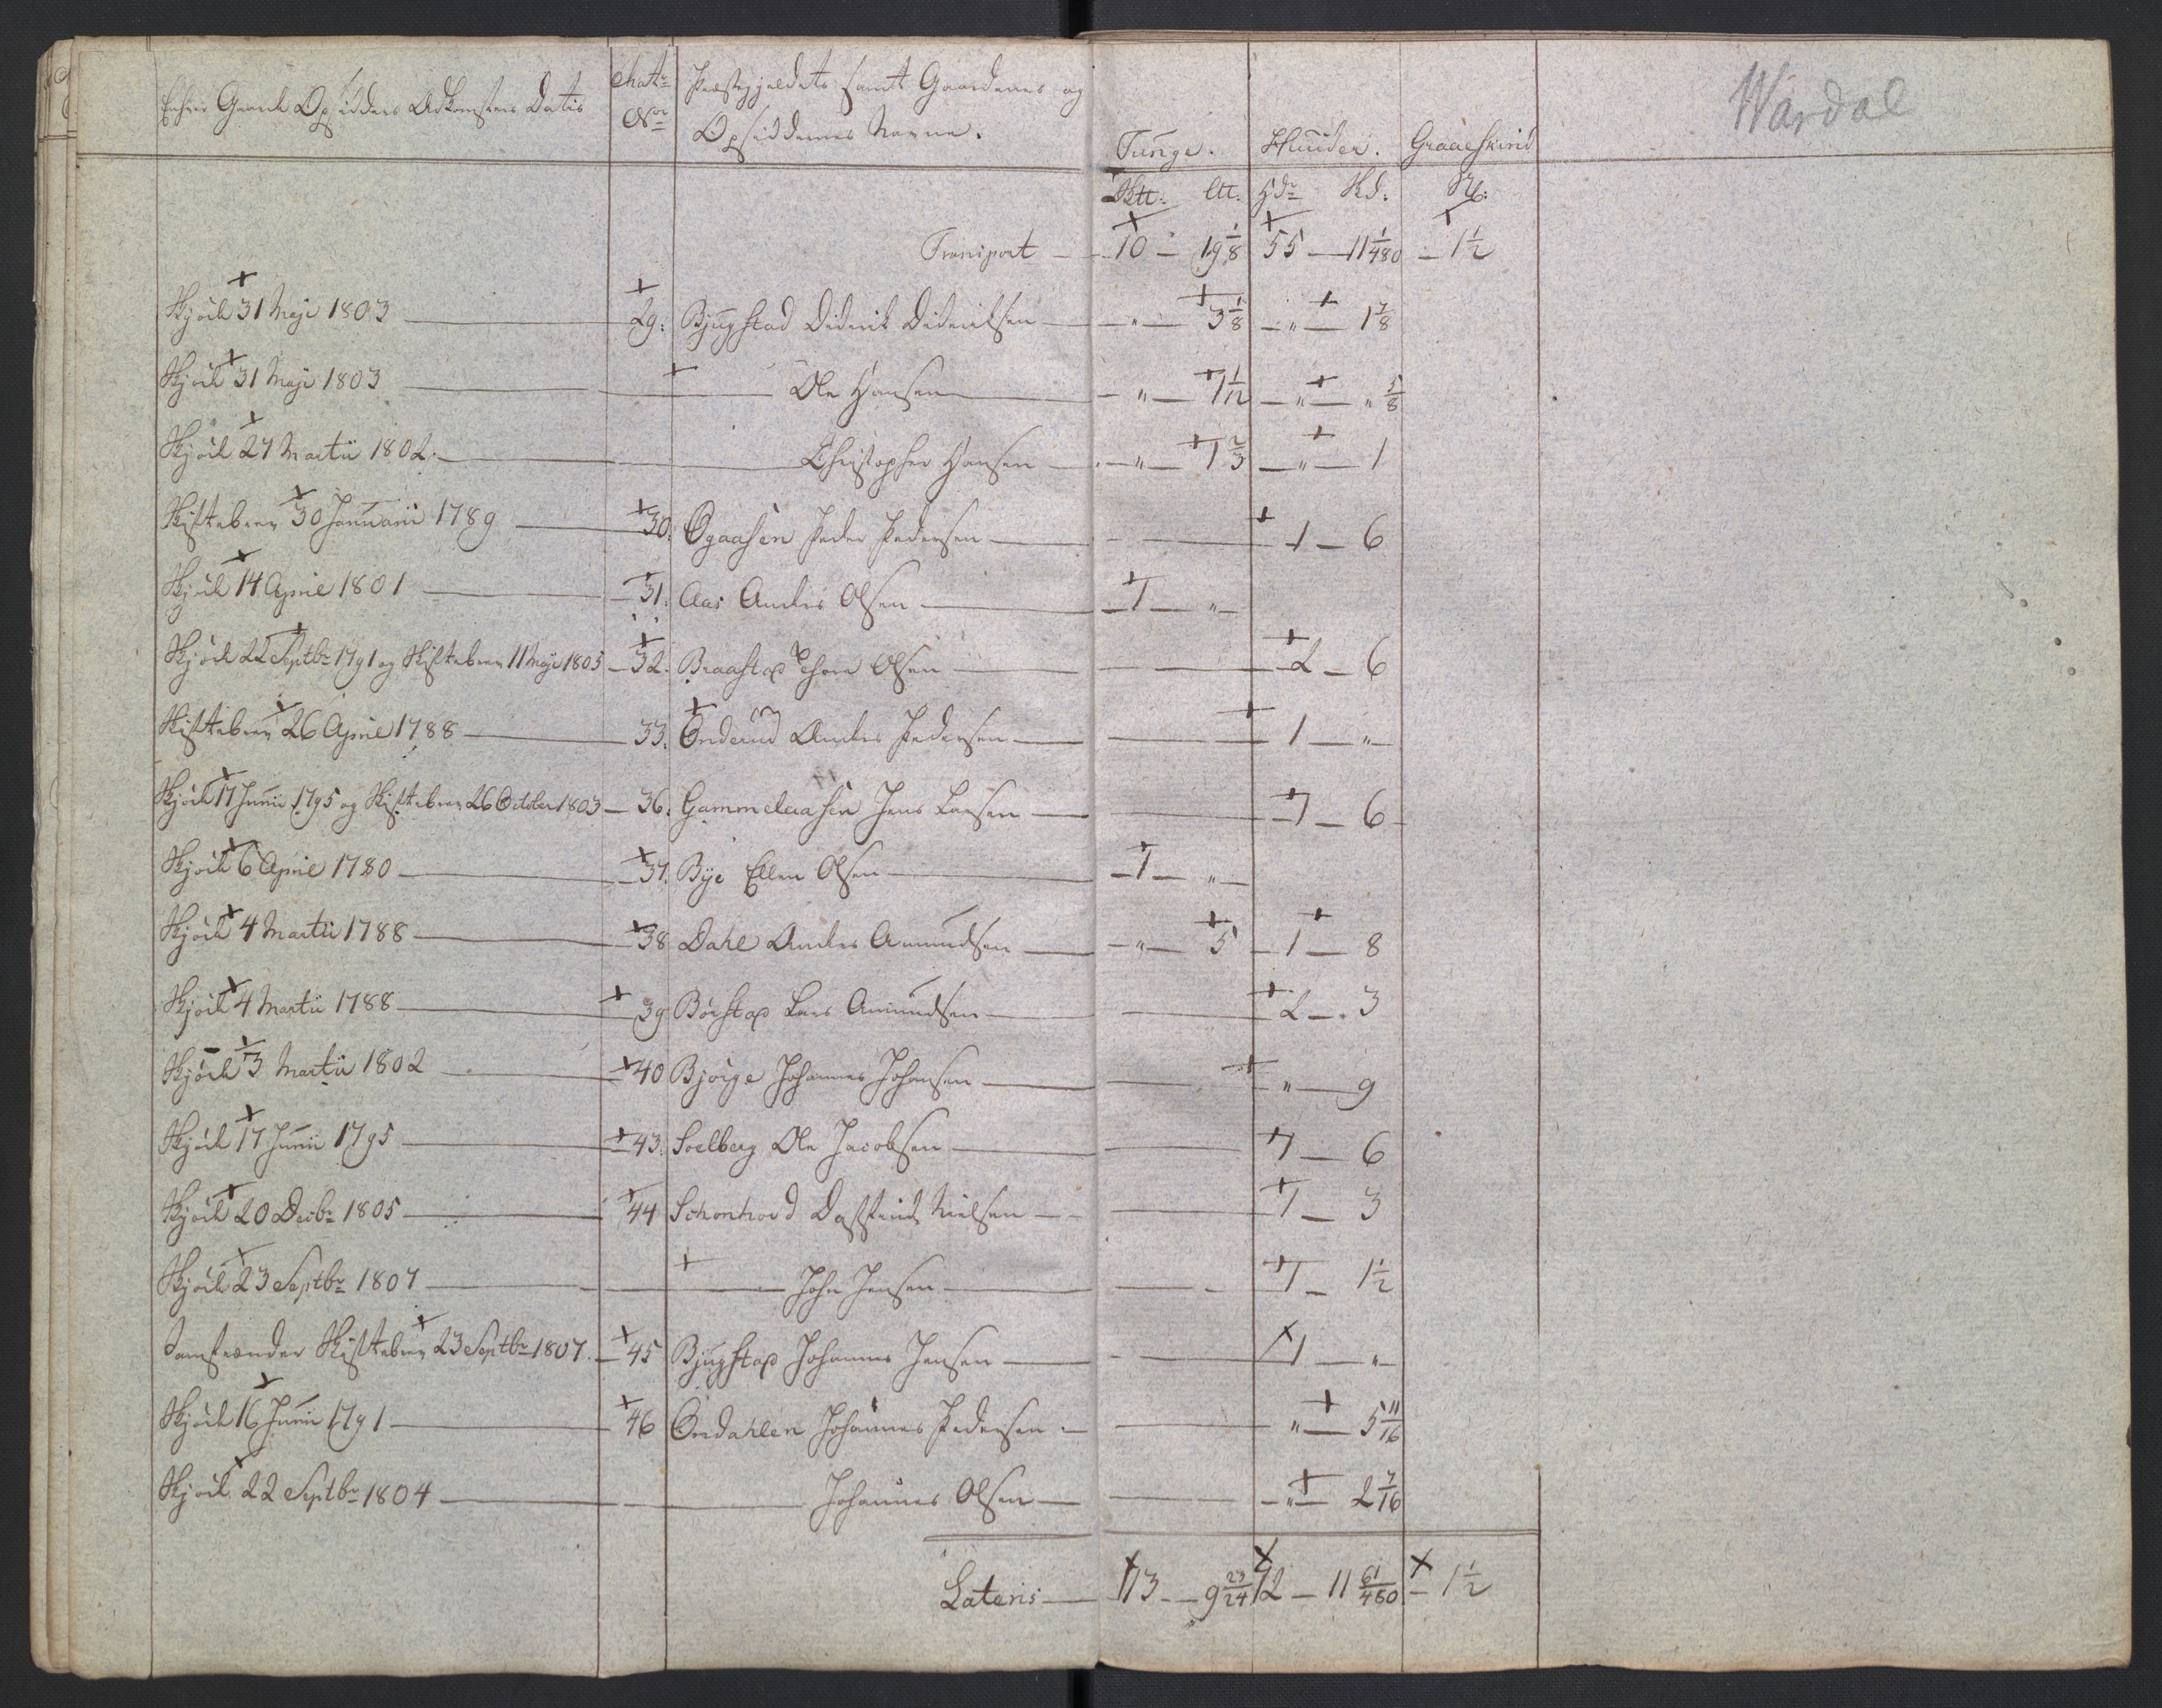 Enhver Gaard Opsidders Adkomsters Datis
Matr. No.
Præstegjeldets samt Gaardenes og
Opsiddernes Navne.
Tunge. Huuder. Graaeskind
Sktt. Ltt. Hdr. Skd. St.
Wardal
Transport — 10 — 19 1/8 55 — 11 1/480 — 1 1/2
Skjöde 31 Maji 1803 — 29. Bjugstad Diderik Diderichsen — " — 3 1/8 — " — 1 7/8
Skjöde 31 Maji 1803 — Ole Hansen — " — 7 1/12 — " — " 5/8
Skjöde 27 Martii 1802. — Christopher Hansen — " — 1 2/3 — " — 1
Skiftebrev 30 Januarii 1789 — 30. Ogaasen Peder Pedersen — 1 — 6
Skjöde 14 April 1801 — 31. Aas Anders Olsen — 1 — "
Skjöde 22 Septbr 1791 og Skiftebrev 11 Maji 1805 — 32. Braastad Thore Olsen — 2 — 6
Skiftebrev 26 April 1788 — 33. Onderud Anders Pedersen — 1 — "
Skjöde 17 Junii 1795 og Skiftebrev 26 October 1803 — 36. Gammelaasen Jens Larsen — 1 — 6
Skjöde 6 April 1780 — 37. Bye Ellen Olsen — 1 — "
Skjöde 4 Martii 1788 — 38 Dahl Anders Amundsen — " — 5 — 1 — 8
Skjöde 4 Martii 1788 — 39 Börstad Lars Amundsen — 2 — 3
Skjöde 3 Martii 1802 — 40 Bjørge Johannes Johansen — " — 9
Skjöde 17 Junii 1795 — 43. Soelberg Ole Jacobsen — 1 — 6
Skjöde 20 Decbr 1805 — 44 Schonhovd Nielsen — 1 — 3
Skjöde 23 Septbr 1807 — John Jensen — 1 — 1 1/2
Skiftebrev 23 Septbr 1807. — 45 Bjugstad Johannes Jensen — 1 — "
Skjöde 16 Junii 1791 — 46 Ondahlen Johannes Pedersen — " — 5 11/16
Skjöde 22 Septbr 1804 — Johannes Olsen — " — 2 7/16
Lateris — 13 — 9 23/24 72 — 11 61/480 — 1 1/2